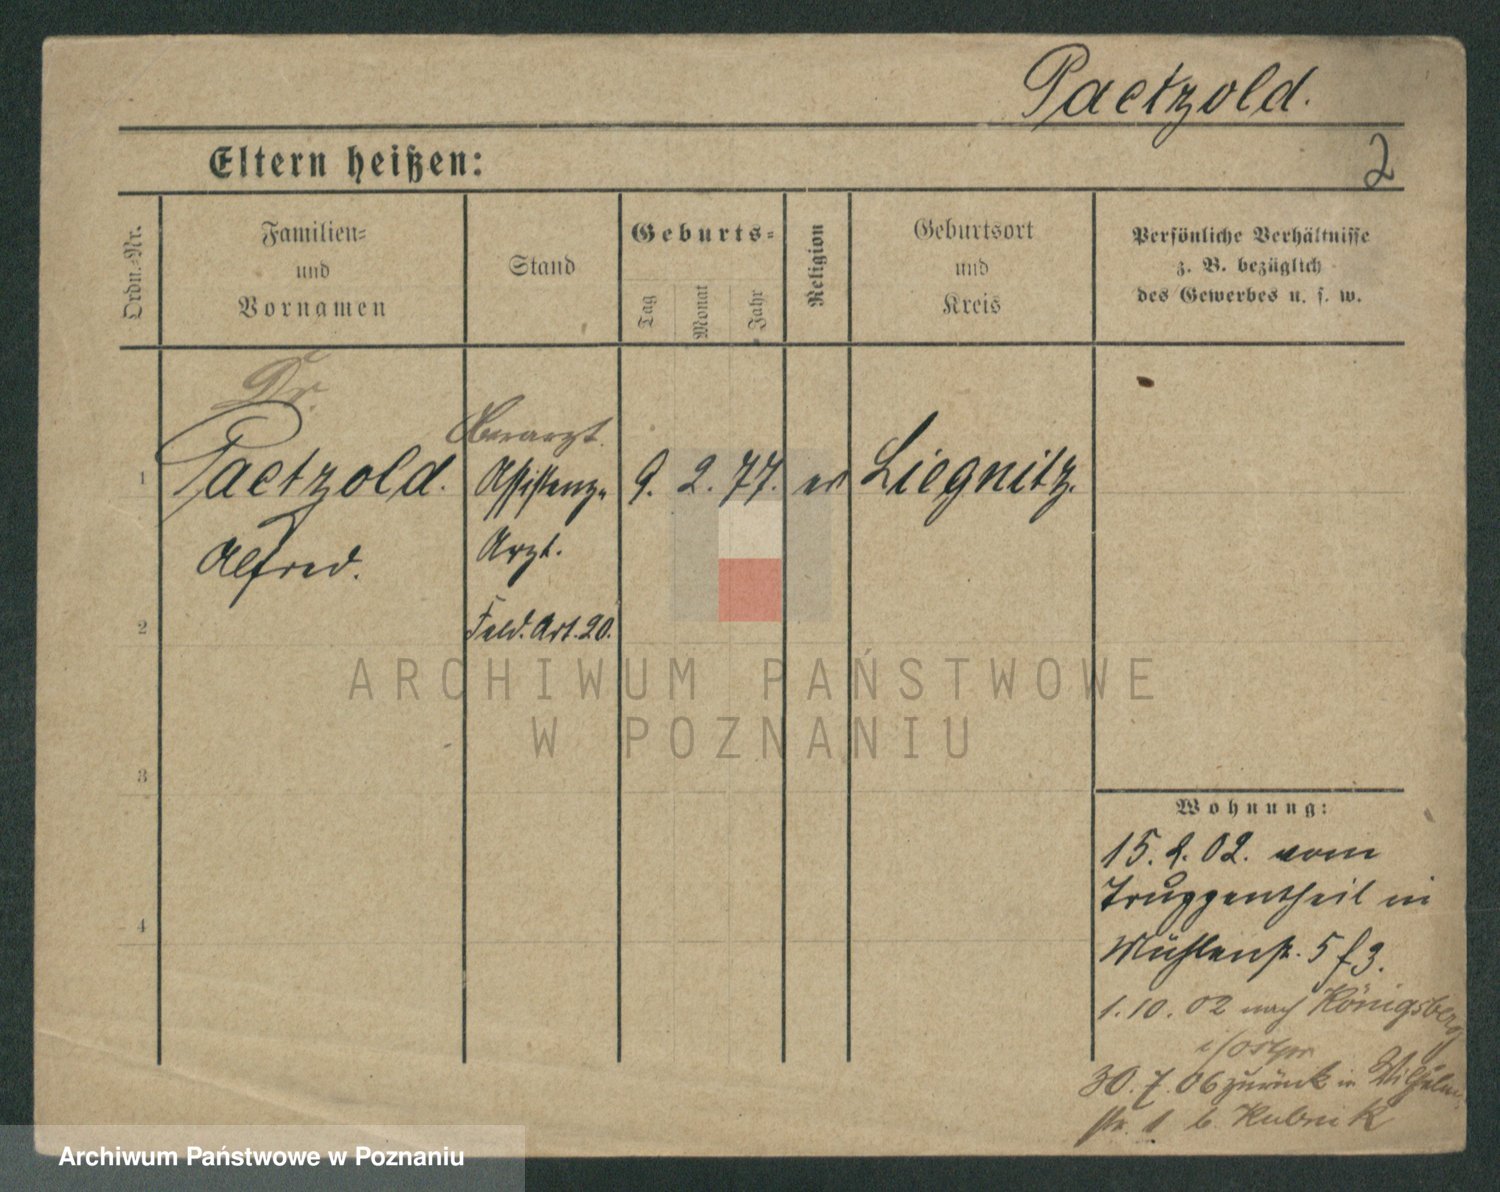 Paetzold.
2
Eltern heißen:
Ordn.-Nr.
Familien-
und
Vornamen
Stand
Geburts-
Tag
Monat
Jahr
Religion
Geburtsort
und
Kreis
Persönliche Verhältnisse
z. B. bezüglich
des Gewerbes u. s. w.
Dr.
Oberarzt.
1
Paetzold.
Assistenz-
9. 2. 77.
ev
Liegnitz.
Alfred.
Arzt.
2
Feld. Art. 20.
ARCHIWUM PAŃSTWOWE
W POZNANIU
3
4
Wohnung:
15. 2. 02. vom
Truppentheil in
Mühlenstr. 5 f 3.
1. 10. 02 nach Königsberg
i/Ostpr.
30. 7. 06 zurück in Wilhelm
str. 1 b
Archiwum Państwowe w Poznaniu